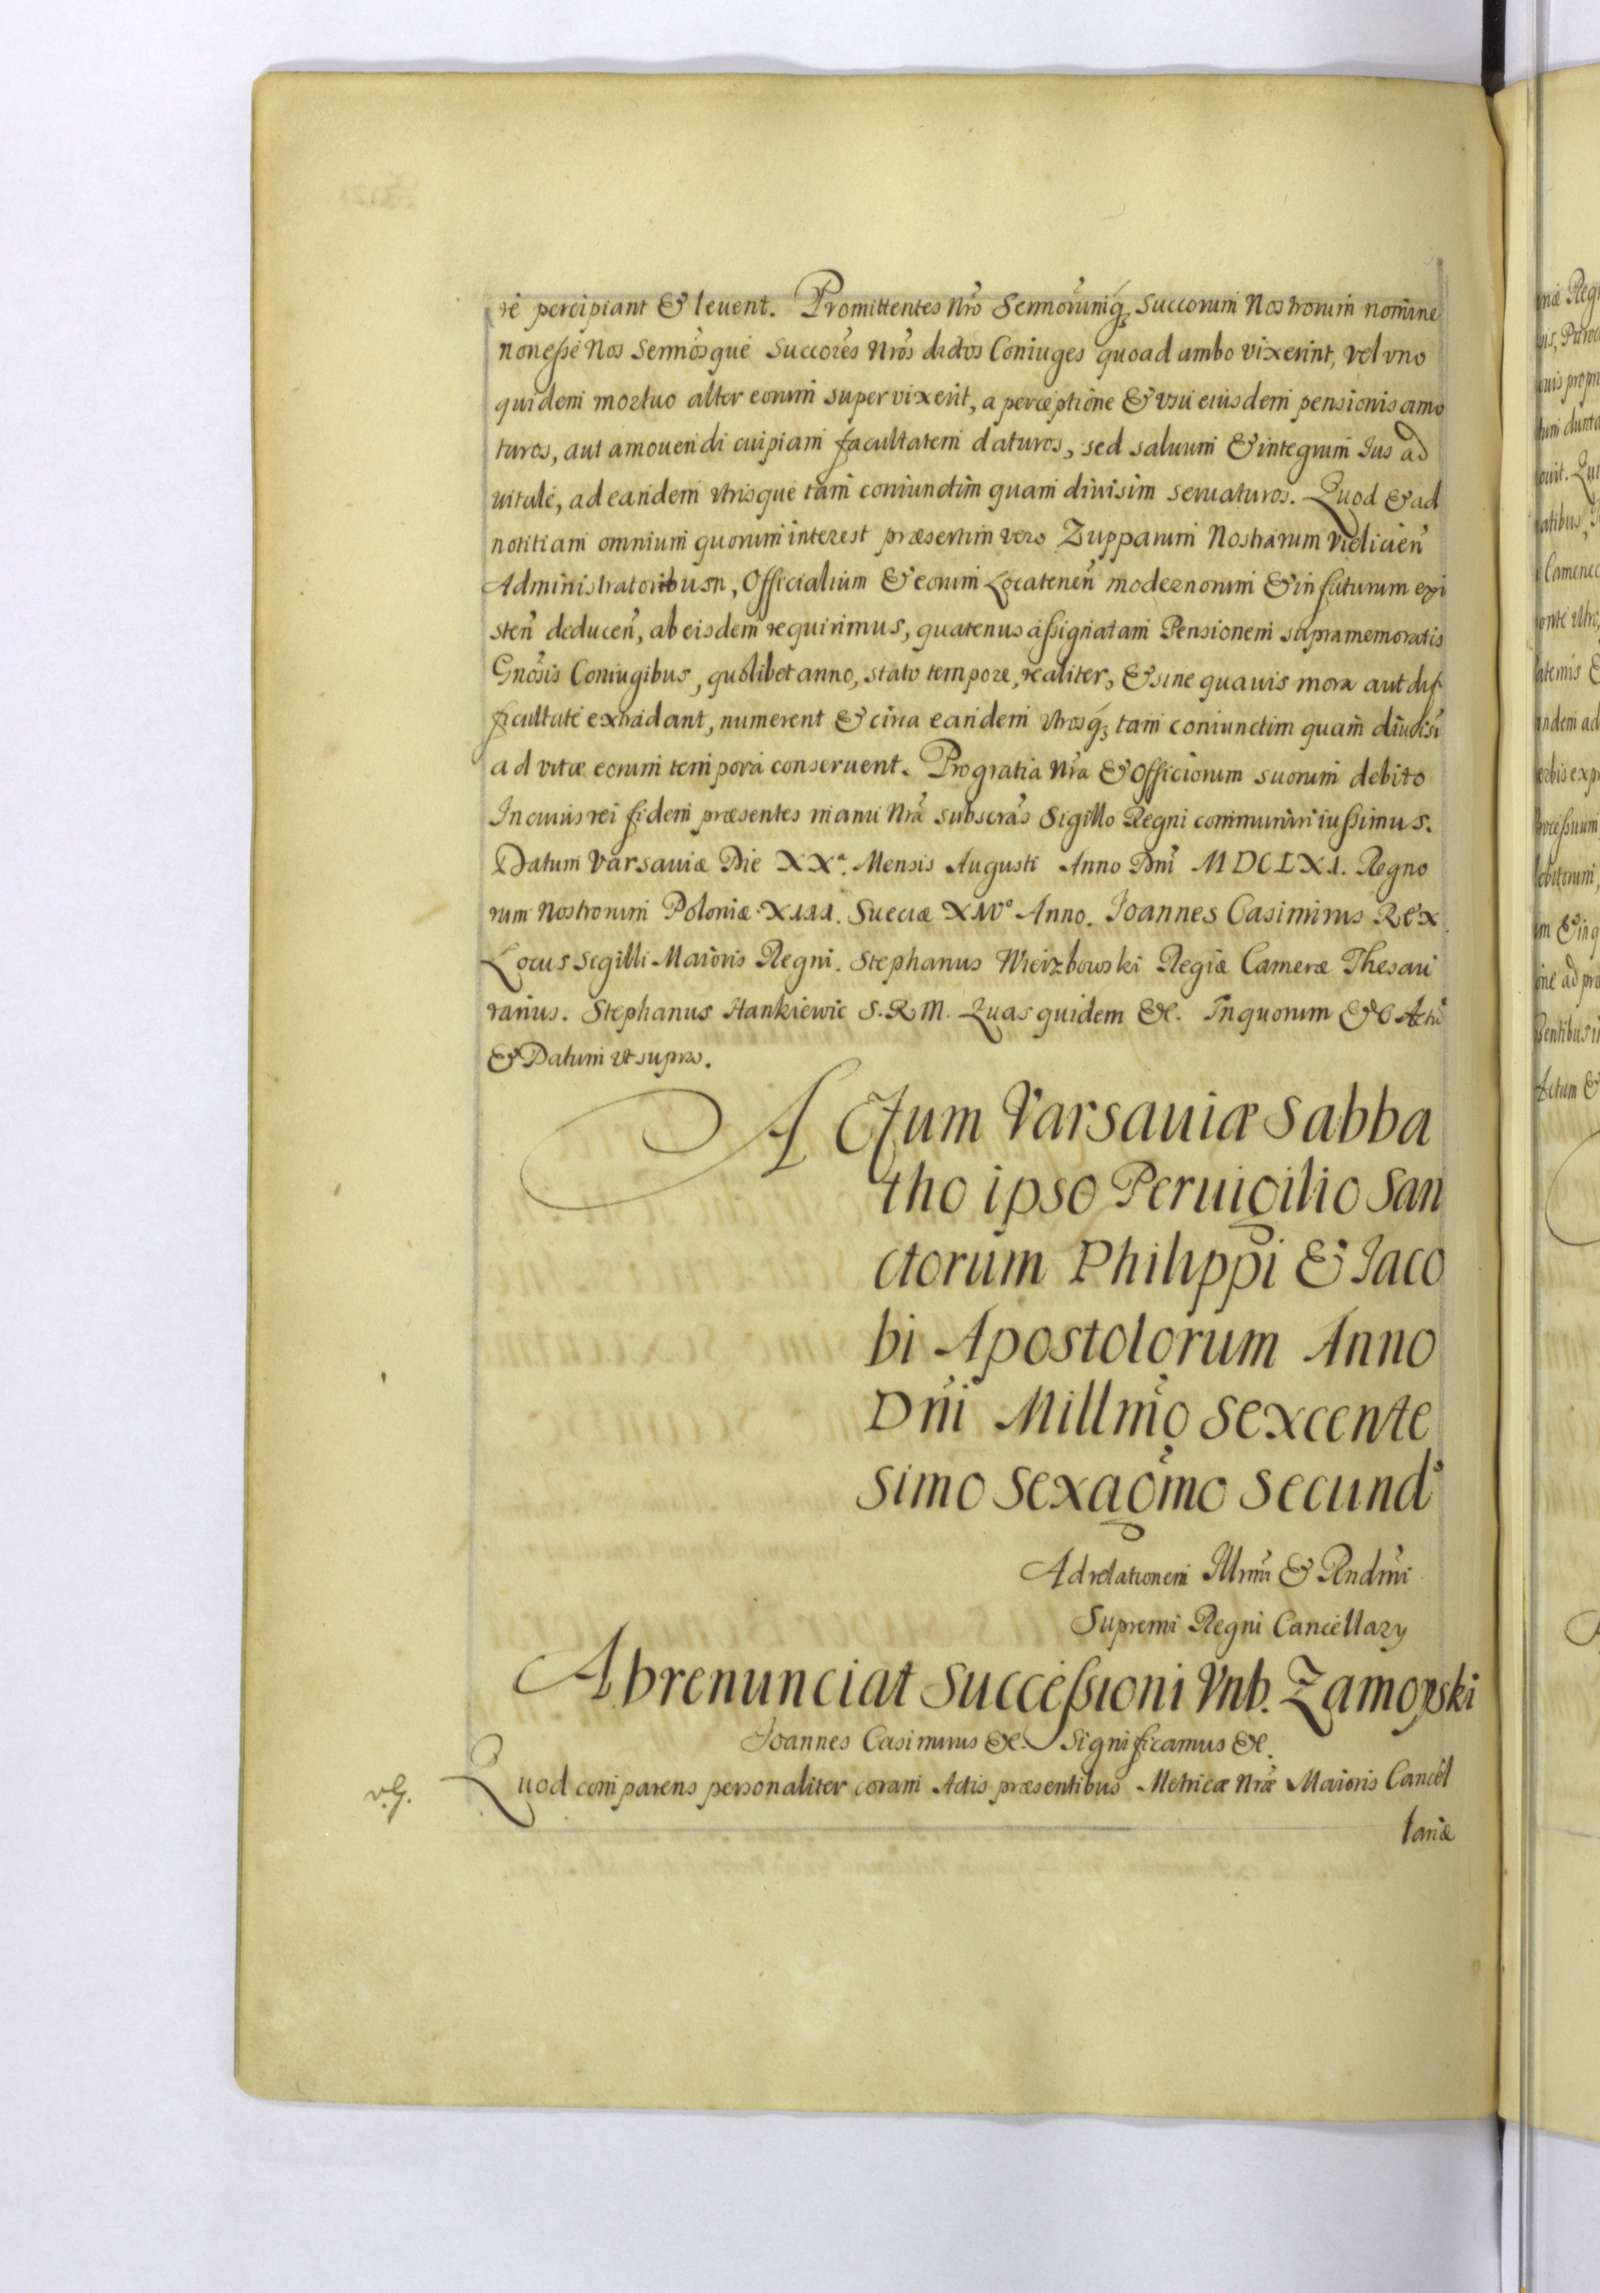 re percipiant & leuent. Promittentes Nro Sermorumq₃ Succorum Nostrorum nomine
non eße Nos Sermosque Succores Nros dictos Coniuges quoad ambo vixerint, vel vno
quidem mortuo alter eorum supervixerit, a perceptione & vsu eiusdem pensionis amo
turos, aut amouendi cuipiam facultatem daturos, sed saluum & integrum Ius ad
uitale, ad eandem vtrisque tam coniunctim quam diuisim seruaturos. Quod & ad
notitiam omnium quorum interest præsertim vero Zupparum Nostrarum Vielicień
Administratoribusn, Officialium & eorum Locateneń modernorum & in futurum exi
steń deduceń, ab eisdem requirimus, quatenus aßignatam Pensionem supramemoratis
Gnosis Coniugibus, quolibet anno, stato tempore, realiter, & sine quauis mora aut dif
ficultate extradant, numerent & circa eandem vtrosq₃ tam coniunctim quam diuisi
ad vitæ eorum tempora conseruent. Pro gratia Nra & Officiorum suorum debito
In cuius rei fidem præsentes manu Nra subscras Sigillo Regni communiri iußimus.
Datum Varsauiæ Die XXª. Mensis Augusti Anno Dni MDCLXI. Regno
rum Nostrorum Poloniæ XIII. Sueciæ XIVº Anno. Ioannes Casimirus Rex
Locus Sigilli Maioris Regni. Stephanus Wierzbowski Regiæ Cameræ Thesau
rarius. Stephanus Hankiewic S.R.M. Quas quidem &c. In quorum &c Actu
& Datum vt supra.
Actum Varsauiæ Sabba
tho ipso Peruigilio San
ctorum Philippi & Iaco
bi Apostolorum Anno
Dni Millmo Sexcente
simo Sexagmo Secundº
Ad relationem Illmi & Rndmi
Supremi Regni Cancellary
Abrenunciat Succeßioni Vnb. Zamoyski
Ioannes Casimirus &c. Significamus &c.
Quod comparens personaliter coram Actis præsentibus Metricæ Nræ Maioris Cancel
lariæ